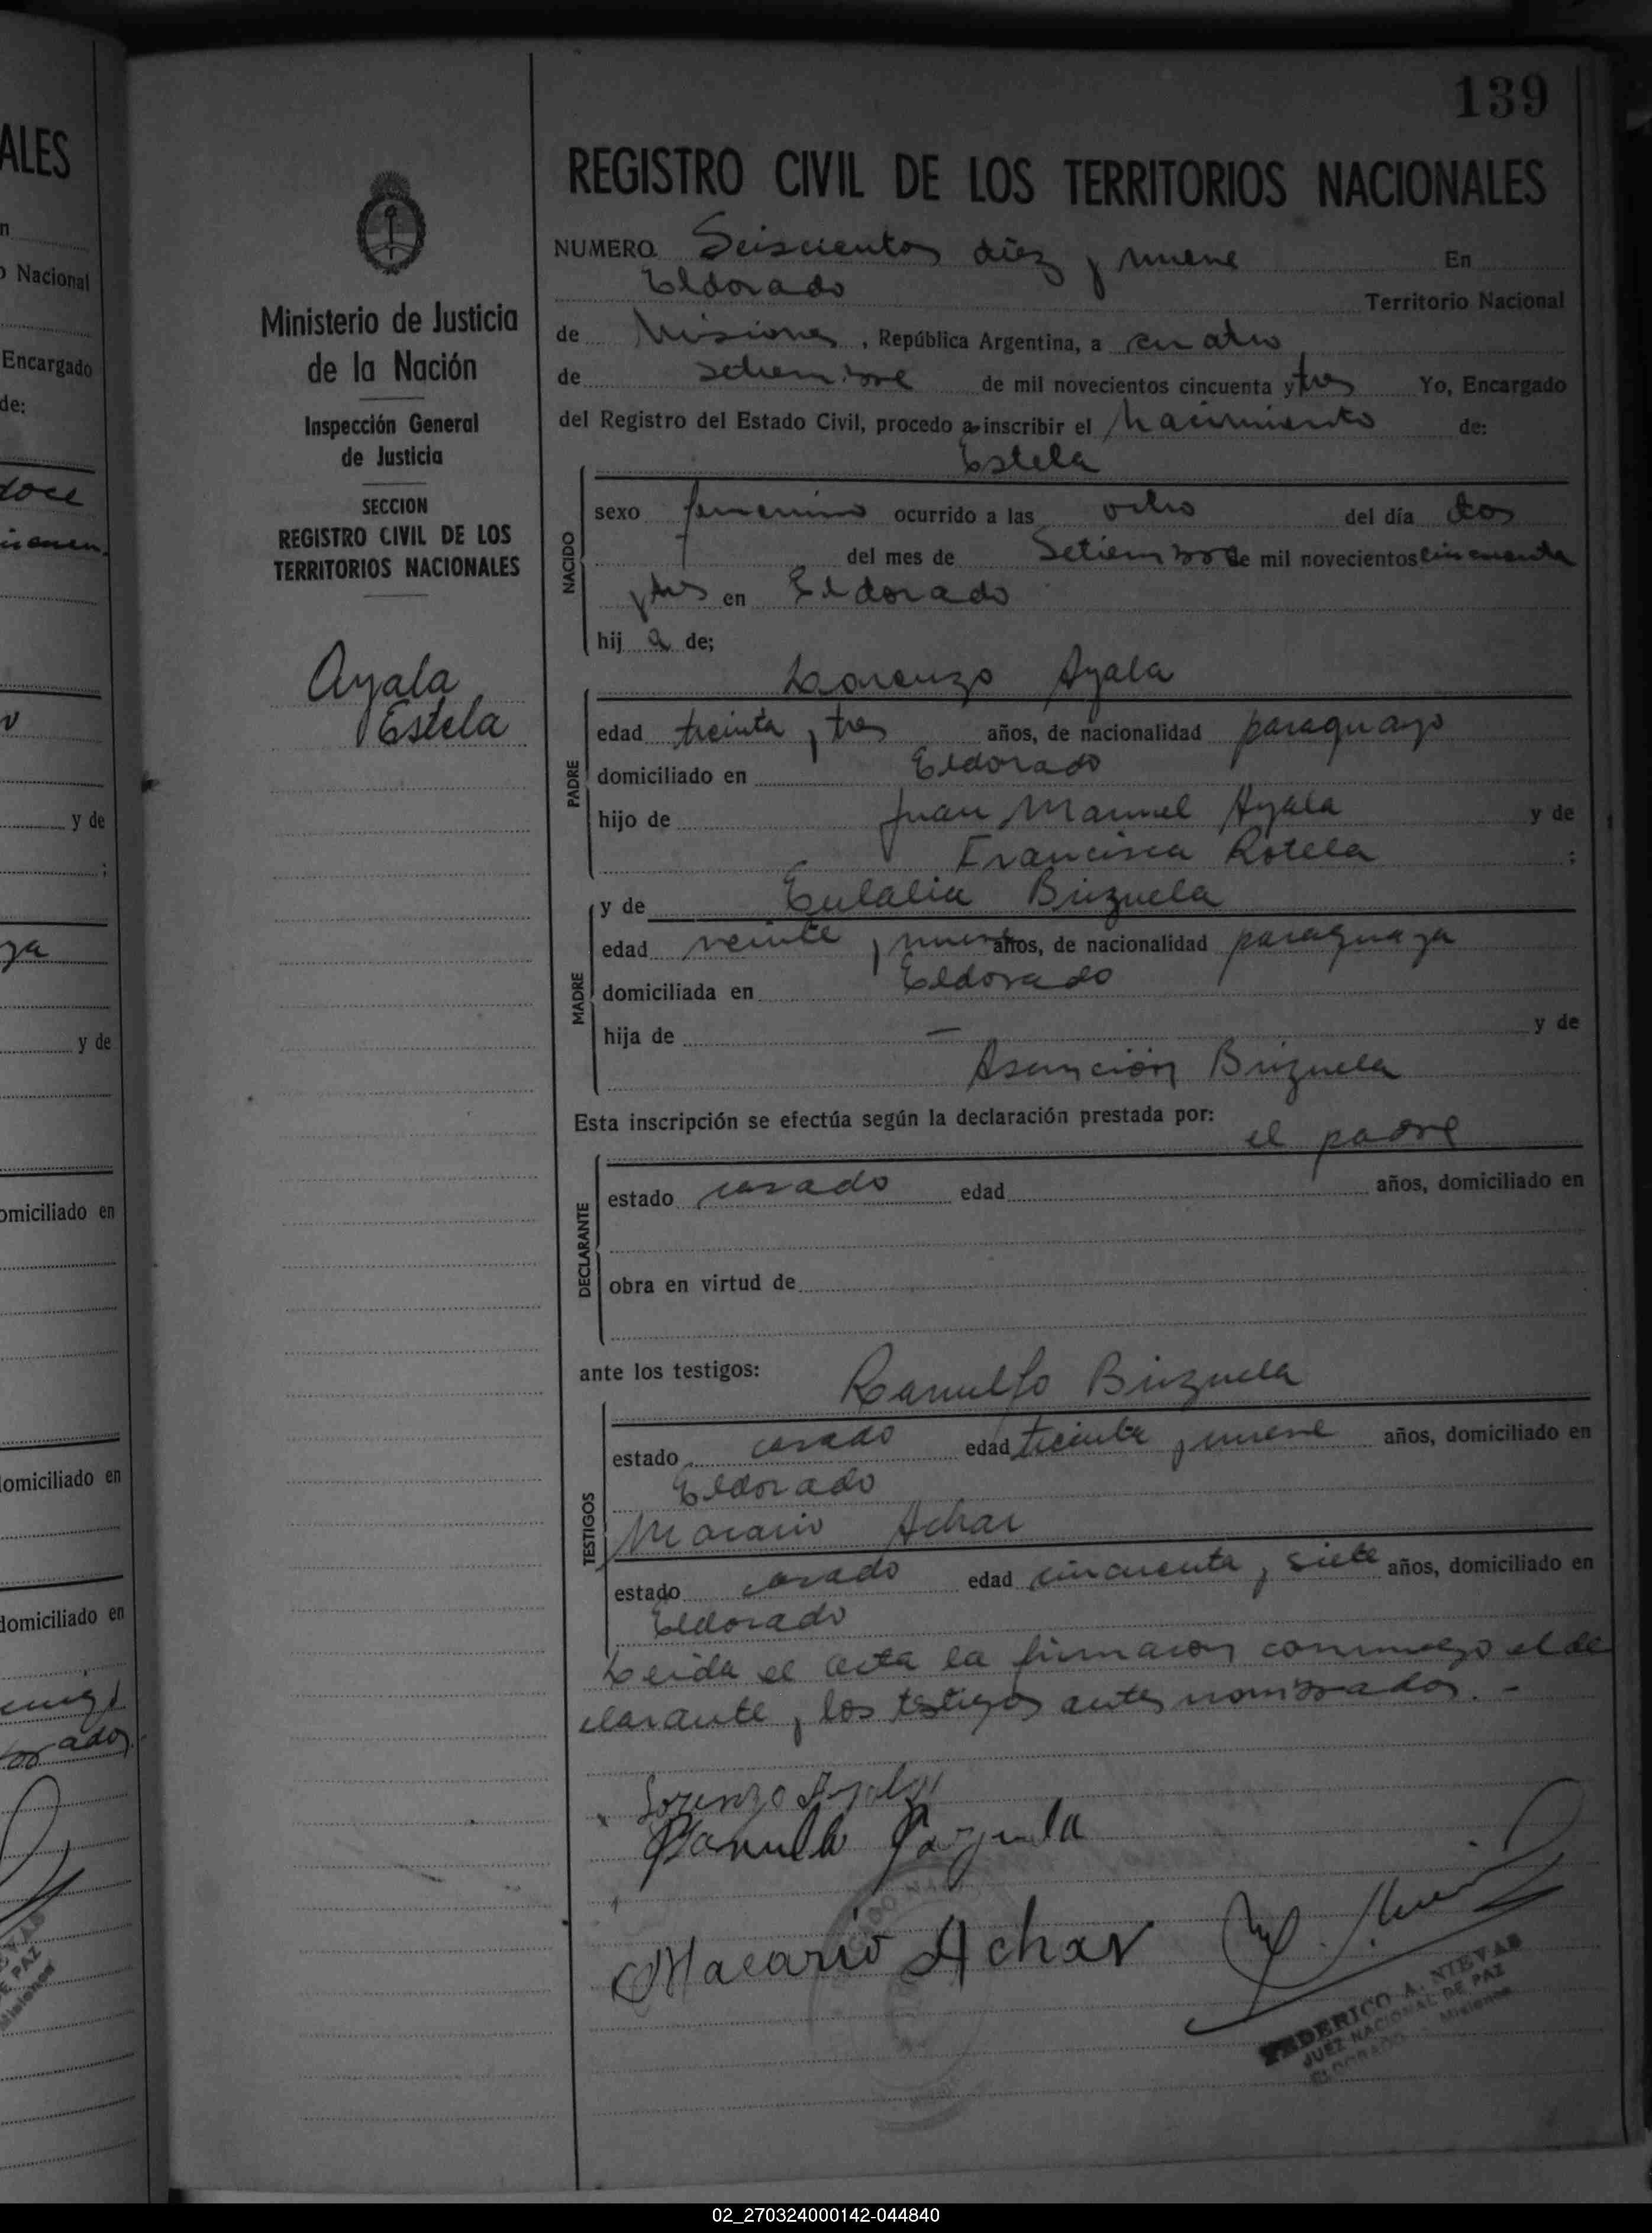 139
REGISTRO CIVIL DE LOS TERRITORIOS NACIONALES
Ministerio de Justicia
de la Nación
Inspección General
de Justicia
SECCION
REGISTRO CIVIL DE LOS
TERRITORIOS NACIONALES
Ayala
Estela
NUMERO Seiscientos diez y nueve En
Eldorado Territorio Nacional
de Misiones, República Argentina, a cuatro
de setiembre de mil novecientos cincuenta y tres Yo, Encargado
del Registro del Estado Civil, procedo a inscribir el Nacimiento de:
Estela
NACIDO
sexo femenino ocurrido a las ocho del día dos
del mes de Setiembre de mil novecientos cincuenta
y tres en Eldorado
hij a de;
Lorenzo Ayala
PADRE
edad treinta y tres años, de nacionalidad paraguayo
domiciliado en Eldorado
hijo de Juan Manuel Ayala y de
Francisca Rotela ;
y de Eulalia Brizuela
MADRE
edad veinte y nueve años, de nacionalidad paraguaya
domiciliada en Eldorado
hija de — y de
Asunción Brizuela
Esta inscripción se efectúa según la declaración prestada por:
el padre
DECLARANTE
estado casado edad años, domiciliado en
obra en virtud de
ante los testigos: Ranulfo Brizuela
TESTIGOS
estado casado edad treinta y nueve años, domiciliado en
Eldorado
Macario Achar
estado casado edad cincuenta y siete años, domiciliado en
Eldorado
Leida el acta la firmaron conmigo el de
clarante y los testigos antes nombrados. -
Lorenzo Ayala
Macario Achar
FEDERICO A. NIEVAS
JUEZ NACIONAL DE PAZ
ELDORADO - Misiones
ALES
n
o Nacional
Encargado
de:
doce
y de
;
y de
omiciliado en
domiciliado en
domiciliado en
02_270324000142-044840